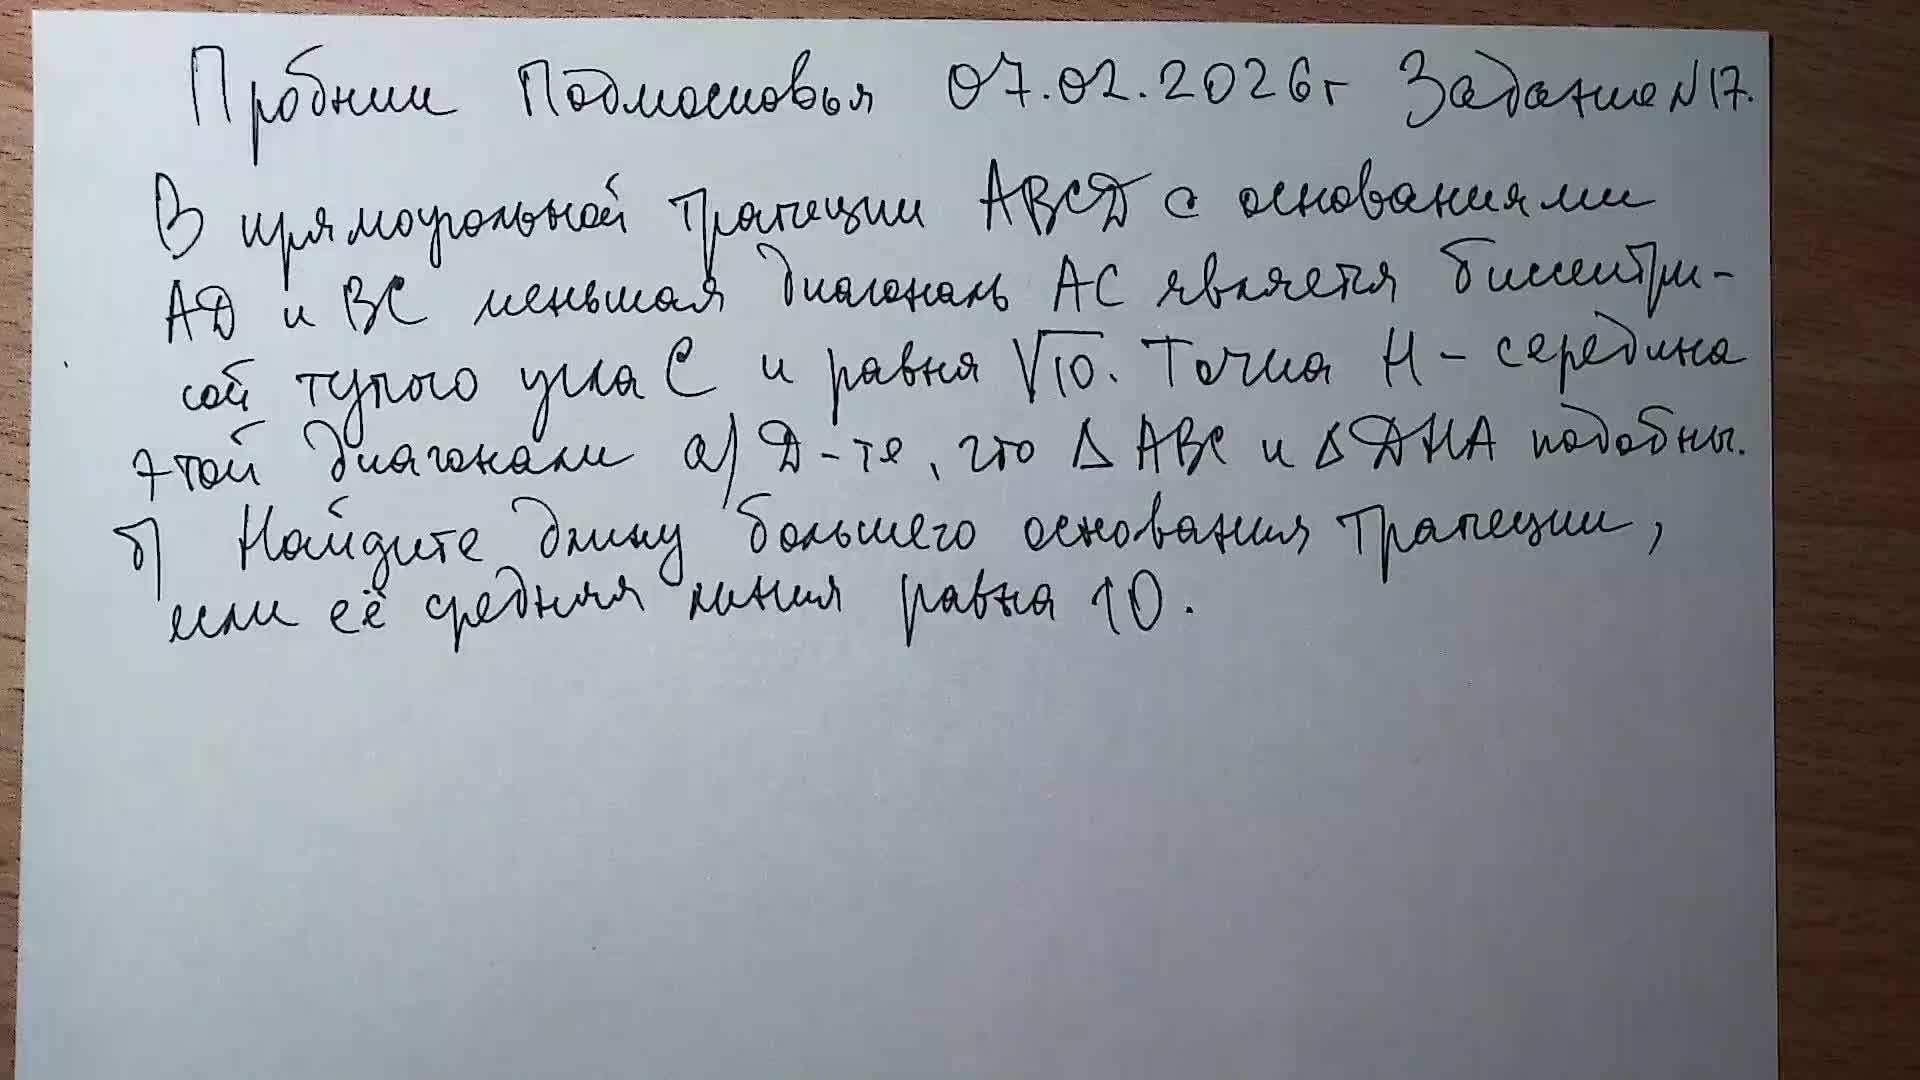 Пробник Подмосковья 07.02.2026г Задание №17.
В прямоугольной трапеции ABCD с основаниями
AD и BC меньшая диагональ AC является биссектри-
сой тупого угла C и равна √10. Точка H - середина
этой диагонали а) Д-те, что Δ ABC и Δ DHA подобны.
б) Найдите длину большего основания трапеции,
если её средняя линия равна 10.